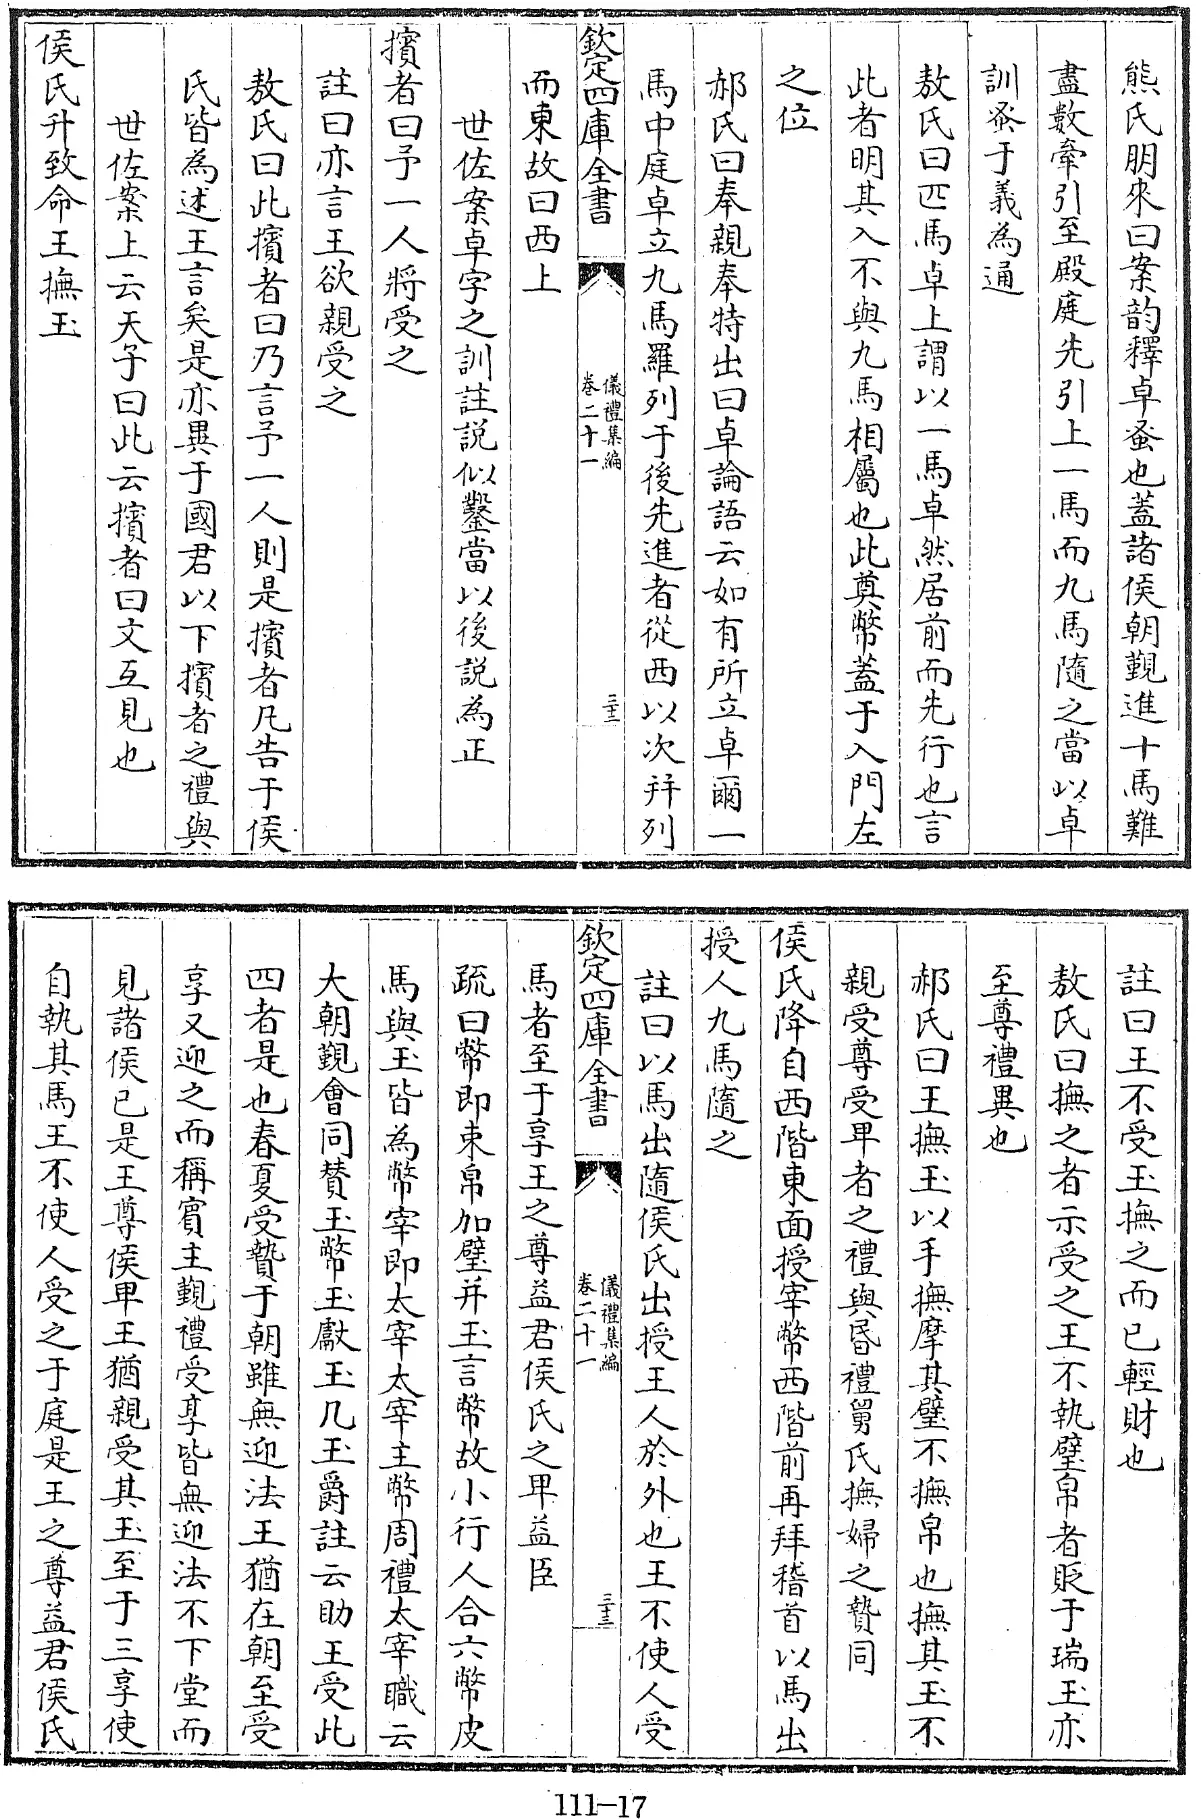 熊氏朋來曰案韵釋卓蚤也蓋諸侯朝覲進十馬難
盡數牽引至殿庭先引上一馬而九馬隨之當以卓
訓蚤于義為通
敖氏曰匹馬卓上謂以一馬卓然居前而先行也言
此者明其入不與九馬相屬也此奠幣蓋于入門左
之位
郝氏曰奉親奉特出曰卓論語云如有所立卓爾一
馬中庭卓立九馬羅列于後先進者從西以次并列
欽定四庫全書
儀禮集編
卷二十一
三十二
而東故曰西上
世佐案卓字之訓註説似鑿當以後説為正
擯者曰予一人將受之
註曰亦言王欲親受之
敖氏曰此擯者曰乃言予一人則是擯者凡告于侯
氏皆為述王言矣是亦異于國君以下擯者之禮與
世佐案上云天子曰此云擯者曰文互見也
侯氏升致命王撫玉
註曰王不受玉撫之而已輕財也
敖氏曰撫之者示受之王不執璧帛者貶于瑞玉亦
至尊禮異也
郝氏曰王撫玉以手撫摩其璧不撫帛也撫其玉不
親受尊受卑者之禮與昏禮舅氏撫婦之贄同
侯氏降自西階東面授宰幣西階前再拜稽首以馬出
授人九馬隨之
註曰以馬出隨侯氏出授王人於外也王不使人受
欽定四庫全書
儀禮集編
卷二十一
三十三
馬者至于享王之尊益君侯氏之卑益臣
疏曰幣即束帛加璧并玉言幣故小行人合六幣皮
馬與玉皆為幣宰即太宰太宰主幣周禮太宰職云
大朝覲會同贊玉幣玉獻玉几玉爵註云助王受此
四者是也春夏受贄于朝雖無迎法王猶在朝至受
享又迎之而稱賓主覲禮受享皆無迎法不下堂而
見諸侯已是王尊侯卑王猶親受其玉至于三享使
自執其馬王不使人受之于庭是王之尊益君侯氏
111-17